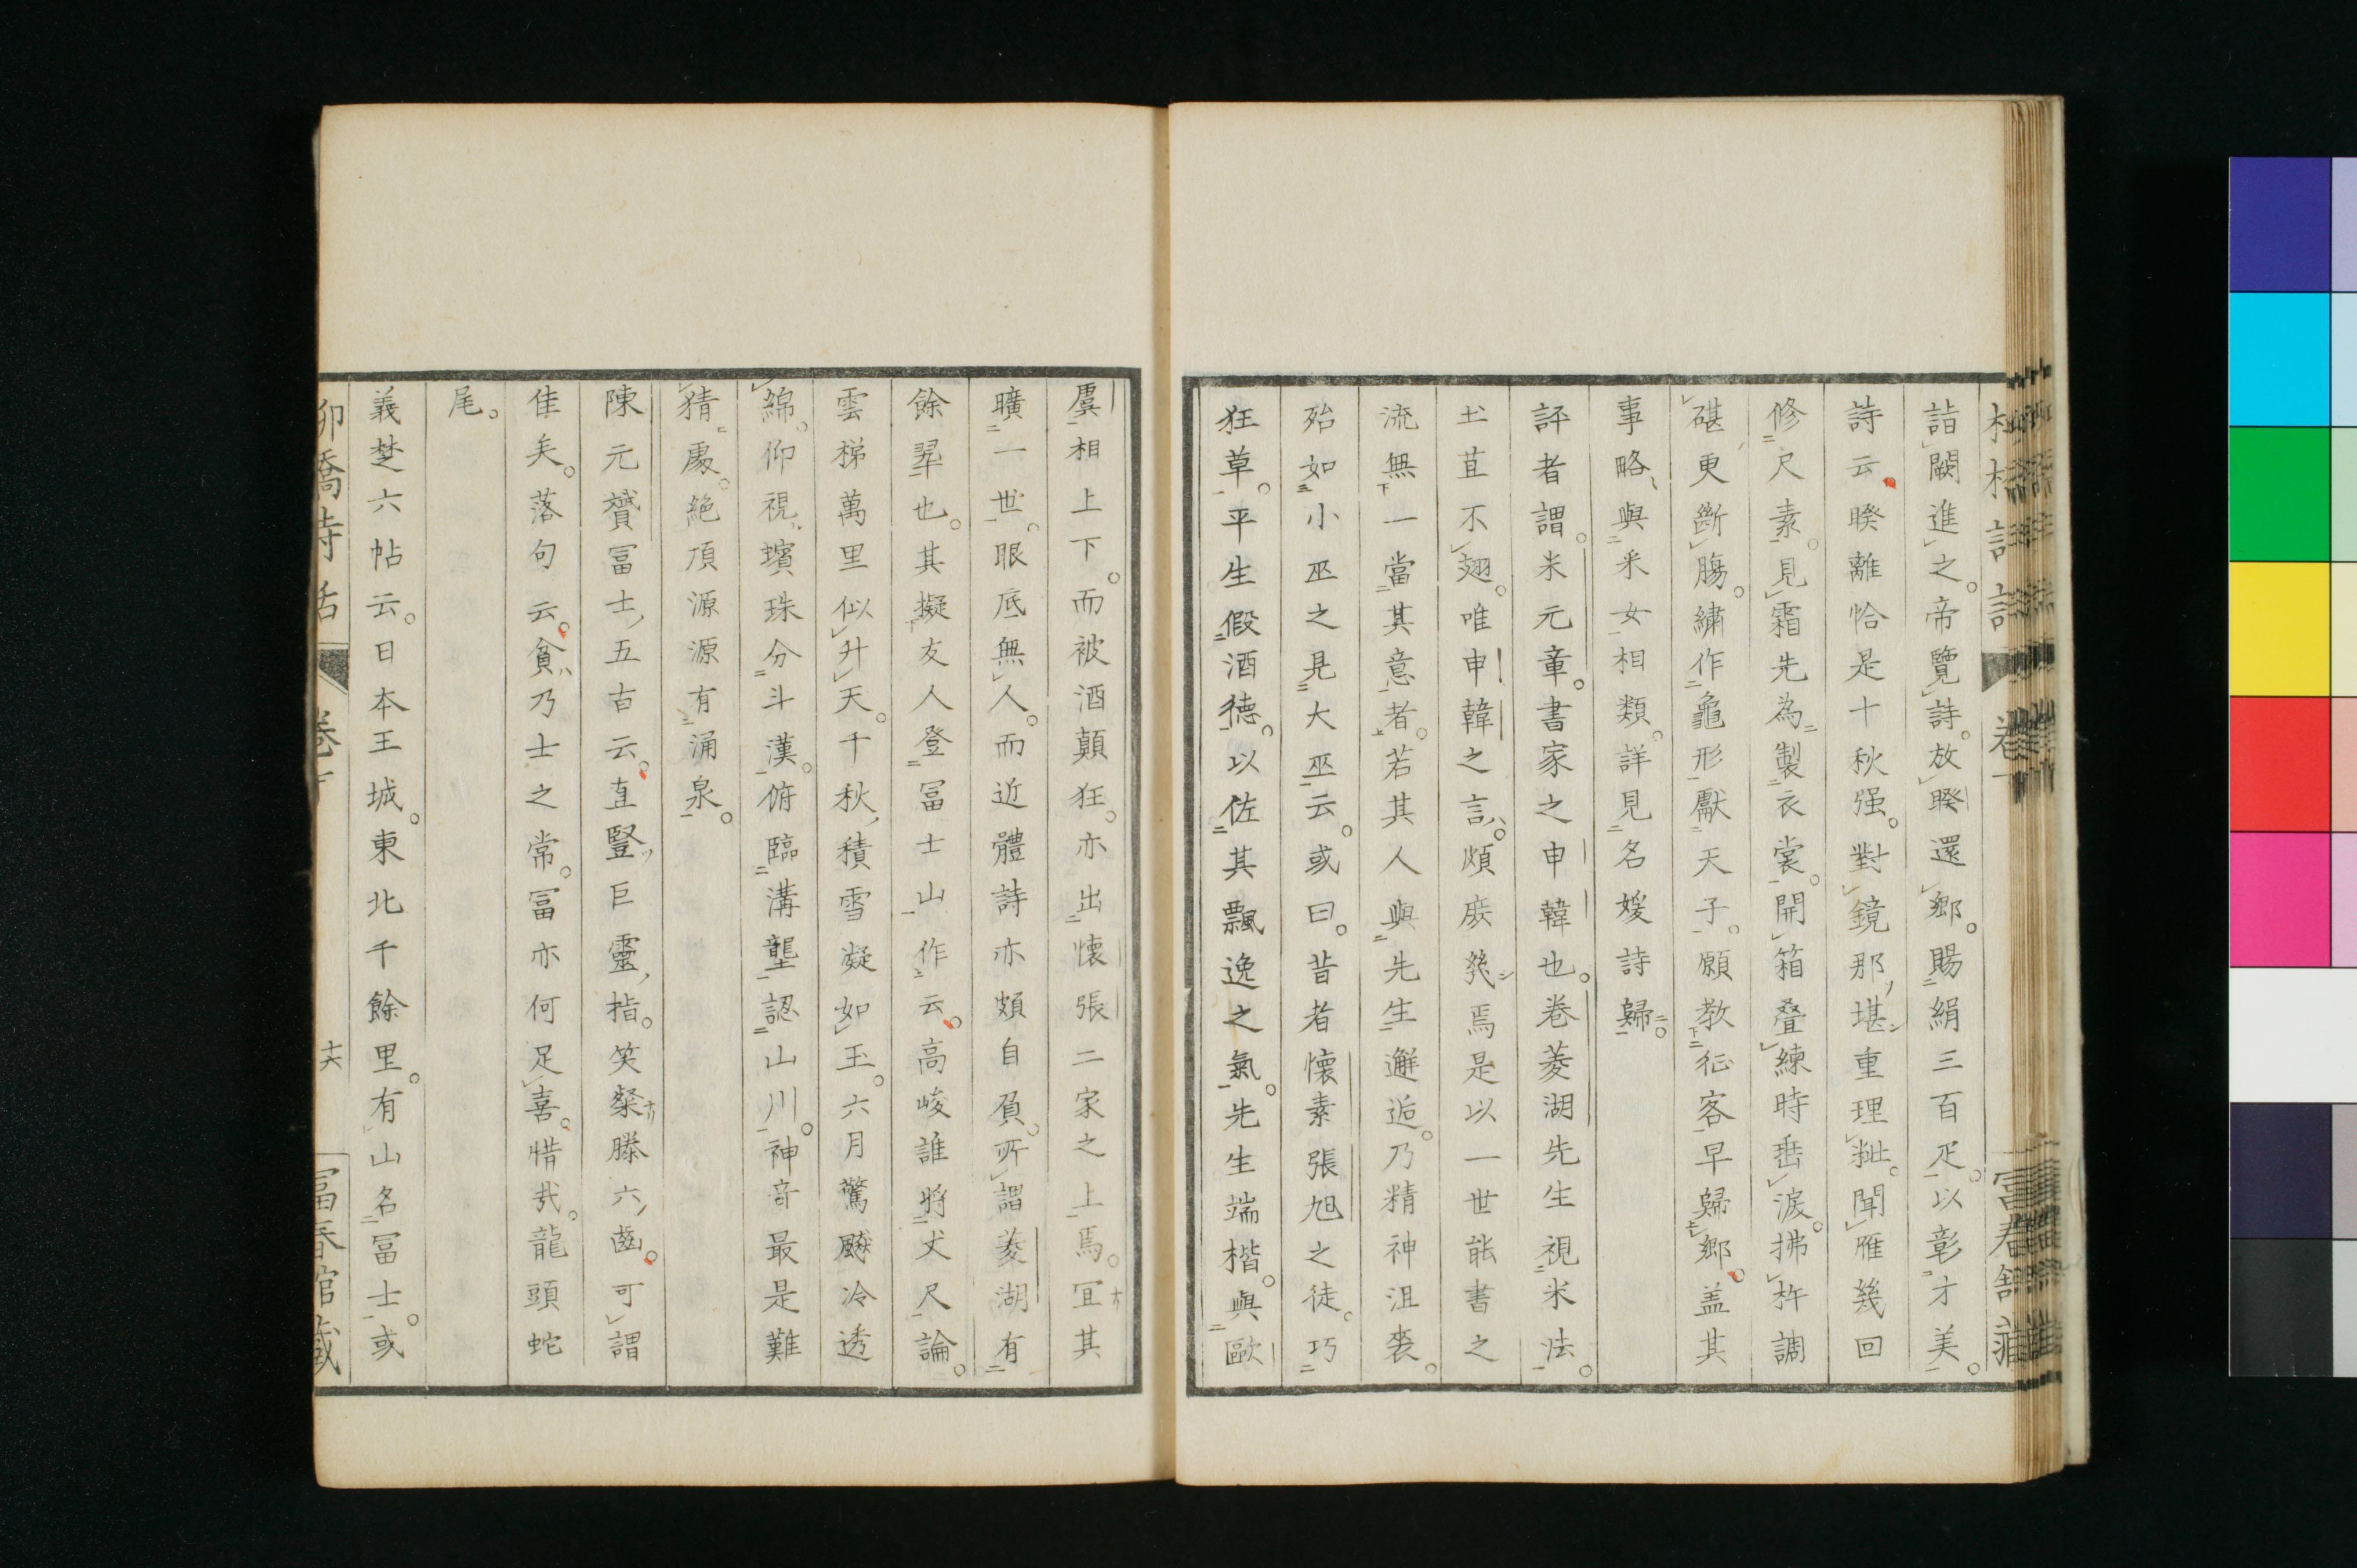 詣闕進之。帝覽詩。放暌還鄉。賜絹三百疋。以彰才美。
詩云暌離恰是十秋强。對鏡那堪重理粃。聞雁幾回
修尺素。見霜先為製衣裳。開箱疊練時垂淚。拂杵調
碪更斷腸。繡作龜形獻天子。願教征客早歸鄉。盖其
事略與采女相類。詳見名媛詩歸。
評者謂。米元章。書家之申韓也。卷菱湖先生視米法。
土苴不翅。唯申韓之言。頗庶幾焉是以一世能書之
流無一當其意者。若其人與先生邂逅。乃精神沮喪。
殆如小巫之見大巫云。或曰。昔者懷素張旭之徒。巧
狂草。平生假酒德。以佐其飄逸之氣。先生端楷。與歐
虞相上下。而被酒顛狂。亦出懷張二家之上焉。宜其
曠一世。眼底無人。而近體詩亦頗自負。所謂菱湖有
餘翠也。其擬友人登冨士山作云。高峻誰將丈尺論。
雲梯萬里似升天。千秋積雪凝如玉。六月驚飈冷透
綿。仰視璸珠分斗漢。俯臨溝壟認山川。神奇最是難
猜處。絶頂源源有涌泉。
陳元贇冨士五古云。直豎巨靈指。笑粲滕六齒。可謂
佳矣。落句云。貧乃士之常。冨亦何足喜。惜哉。龍頭蛇
尾。
義楚六帖云。日本王城。東北千餘里。有山名冨士。或
卷下
十六